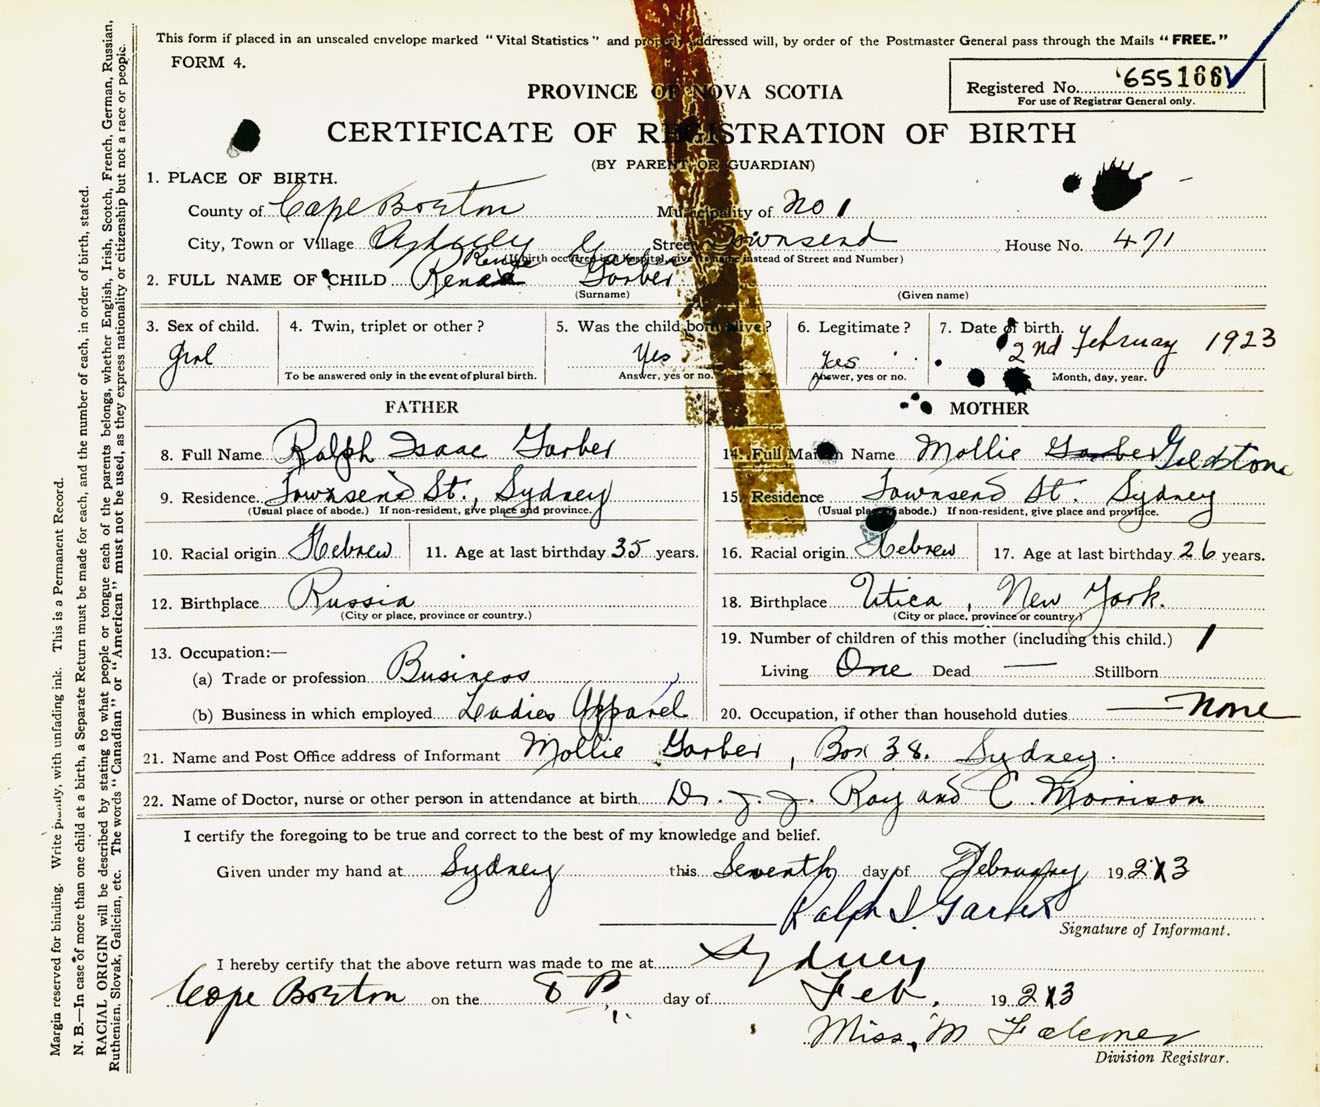 This form if placed in an unsealed envelope marked "Vital Statistics" and properly addressed will, by order of the Postmaster General pass through the Mails "FREE."
FORM 4.
Registered No. 655166
For use of Registrar General only.
PROVINCE OF NOVA SCOTIA
CERTIFICATE OF REGISTRATION OF BIRTH
(BY PARENT OR GUARDIAN)
1. PLACE OF BIRTH.
County of Cape Breton Municipality of No 1
City, Town or Village Sydney Street Townsend House No. 471
(If birth occurred in a hospital, give its name instead of Street and Number)
Renee Garber
2. FULL NAME OF CHILD Garber
(Surname) (Given name)
3. Sex of child. 4. Twin, triplet or other? 5. Was the child born alive? 6. Legitimate? 7. Date of birth.
Girl Yes Yes 2nd February 1923
To be answered only in the event of plural birth. Answer, yes or no. Answer, yes or no. Month, day, year.
FATHER MOTHER
8. Full Name Ralph Isaac Garber 14. Full Maiden Name Mollie Garber Goldstone
9. Residence. Townsend St., Sydney 15. Residence Townsend St. Sydney
(Usual place of abode.) If non-resident, give place and province. (Usual place of abode.) If non-resident, give place and province.
10. Racial origin Hebrew 11. Age at last birthday 35 years. 16. Racial origin Hebrew 17. Age at last birthday 26 years.
12. Birthplace Russia 18. Birthplace Utica, New York.
(City or place, province or country.) (City or place, province or country.)
13. Occupation:— 19. Number of children of this mother (including this child.) 1
(a) Trade or profession Business Living One Dead — Stillborn
(b) Business in which employed Ladies Apparel 20. Occupation, if other than household duties — None
21. Name and Post Office address of Informant Mollie Garber, Box 38. Sydney.
22. Name of Doctor, nurse or other person in attendance at birth Dr. J. J. Roy and C. Morrison
I certify the foregoing to be true and correct to the best of my knowledge and belief.
Given under my hand at Sydney this Seventh day of February 1923
Ralph I. Garber
Signature of Informant.
I hereby certify that the above return was made to me at Sydney
Cape Breton on the 8th day of Feb. 1923
Miss. M
Division Registrar.
Margin reserved for binding. Write plainly, with unfading ink. This is a Permanent Record.
N. B.—In case of more than one child at a birth, a Separate Return must be made for each, and the number of each, in order of birth, stated.
RACIAL ORIGIN will be described by stating to what people or tongue each of the parents belongs, whether English, Irish, Scotch, French, German, Russian,
Ruthenian, Slovak, Galician, etc. The words "Canadian" or "American" must not be used, as they express nationality or citizenship but not a race or people.